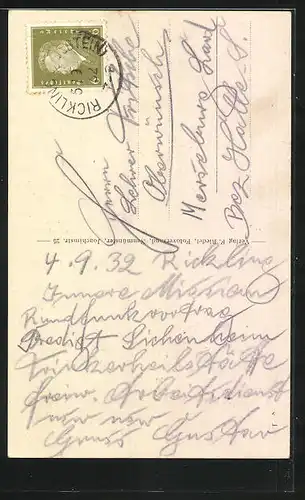 RICKLING
Herrn
Lehrer Fritzsche
Oberwünsch
Merseburg Land
Bez Halle-S.
Verlag F. Riedel, Fotoversand, Neumünster, Joachimstr. 25
4.9.32 Rickling
Innere Mission
Rundfunkvortrag
Predigt Siechenheim
Trinkerheilstätte
freiw. Arbeitsdienst
usw usw
Gruss Gustav